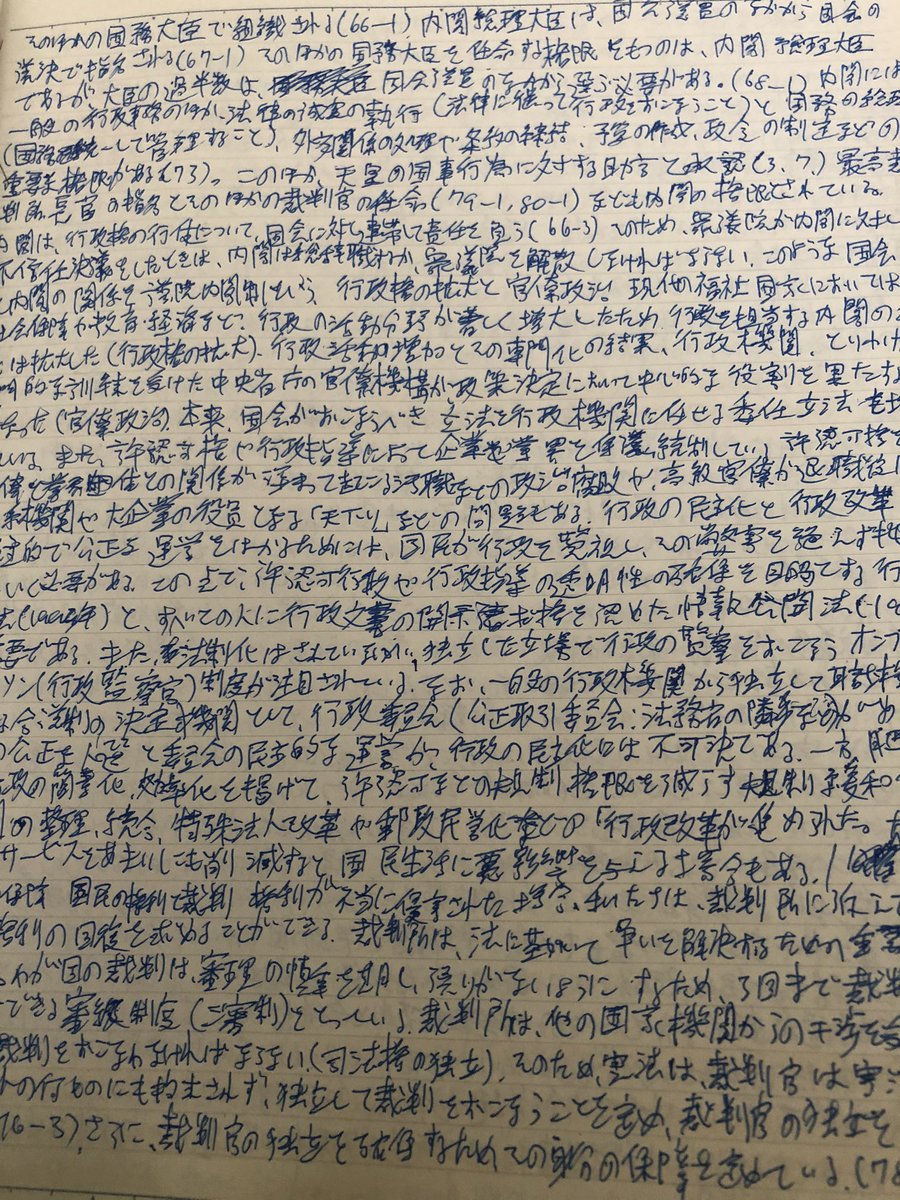 そのほかの国務大臣で組織される(66-1) 内閣総理大臣は、国会議員のなかから国会の
議決で指名される(67-1) そのほかの国務大臣を任命する権限をものは、内閣総理大臣
であるが大臣の過半数は、国会議員の中から選ぶ必要がある。(68-1) 内閣には
一般の行政事務のほか、法律の誠実の執行(法律に従って行政をおこなうこと)と国務の総理
(国務を統一して管理すること)、外交関係の処理や条約の締結、予算の作成、政令の制定などの
重要な権限がある(73)。このほか、天皇の国事行為に対する助言と承認(3、7) 最高裁
判所長官の指名とそのほかの裁判官の任命(79-1,80-1)なども内閣の権限とされている。
内閣は、行政権の行使について、国会に対し連帯して責任を負う(66-3) このため、衆議院が内閣に対し
不信任決議をしたときは、内閣は総辞職するか、衆議院を解散しなければならない、このような国会
と内閣の関係を議院内閣制という 行政権の拡大と官僚政治 現代の福祉国家においては
社会保障や教育・経済など、行政の活動分野が著しく増大したため、行政を担当する内閣の
は拡大した(行政権の拡大)、行政活動増加とその専門化の結果、行政機関、とりわけ
門的な訓練を受けた中央省庁の官僚機構が政策決定において中心的な役割を果たすよ
なった(官僚政治) 本来、国会がおこなうべき立法を行政機関に任せる委任立法も
いる。また、許認可権や行政指導によって企業や業界を保護、統制してい 許認可権を
官僚と業界との関係が深まって起こる汚職などの政治腐敗や、高級官僚が退職後に
機関や大企業の役員となる「天下り」などの問題もある。行政の民主化と行政改革
的で公正な運営をはかるためには、国民が行政を監視し、その 事を絶えず
いく必要がある。この点で、許認可行政や行政指導の透明性の確保を目的とする行
法(1993年)と、すべての人に行政文書の開示請求権を認めた情報公開法(19
要である。また、法制化はされていないが、独立した立場で行政の監察をおこなうオンブ
ズマン(行政監察官)制度が注目されている。なお、一般の行政機関から独立して
な合議制の決定機関として、行政委員会(公正取引委員会:法務省の
の公正な人選と委員会の民主的な運営が、行政の民主化には不可決である。一方、
行政の簡素化、効率化を掲げて、許認可などの規制権限を減らす規制緩和
の整理、統合、特殊法人改革や郵政民営化などの「行政改革が進められた。
サービスをあまりにも削減すると国民生活に悪影響を与える場合もある。
国民の権利と裁判 権利が不当に侵害された場合、私たちは、裁判所に訴えて
権利の回復を求めることができる。裁判所は、法に基づいて争いを解決するための
わが国の裁判は、審理の慎重を期し、誤りがないようにするため、3回まで裁判
できる審級制度(三審制)をとっている。裁判所は、他の国家機関からの干渉を
裁判をおこなわなければならない(司法権の独立)、そのため、憲法は、裁判官は憲法
の何ものにも拘束されず、独立して裁判をおこなうことを定め、裁判官の独立を
(76-3)、さらに、裁判官の独立を確保するためその身分の保障を定めている。(78